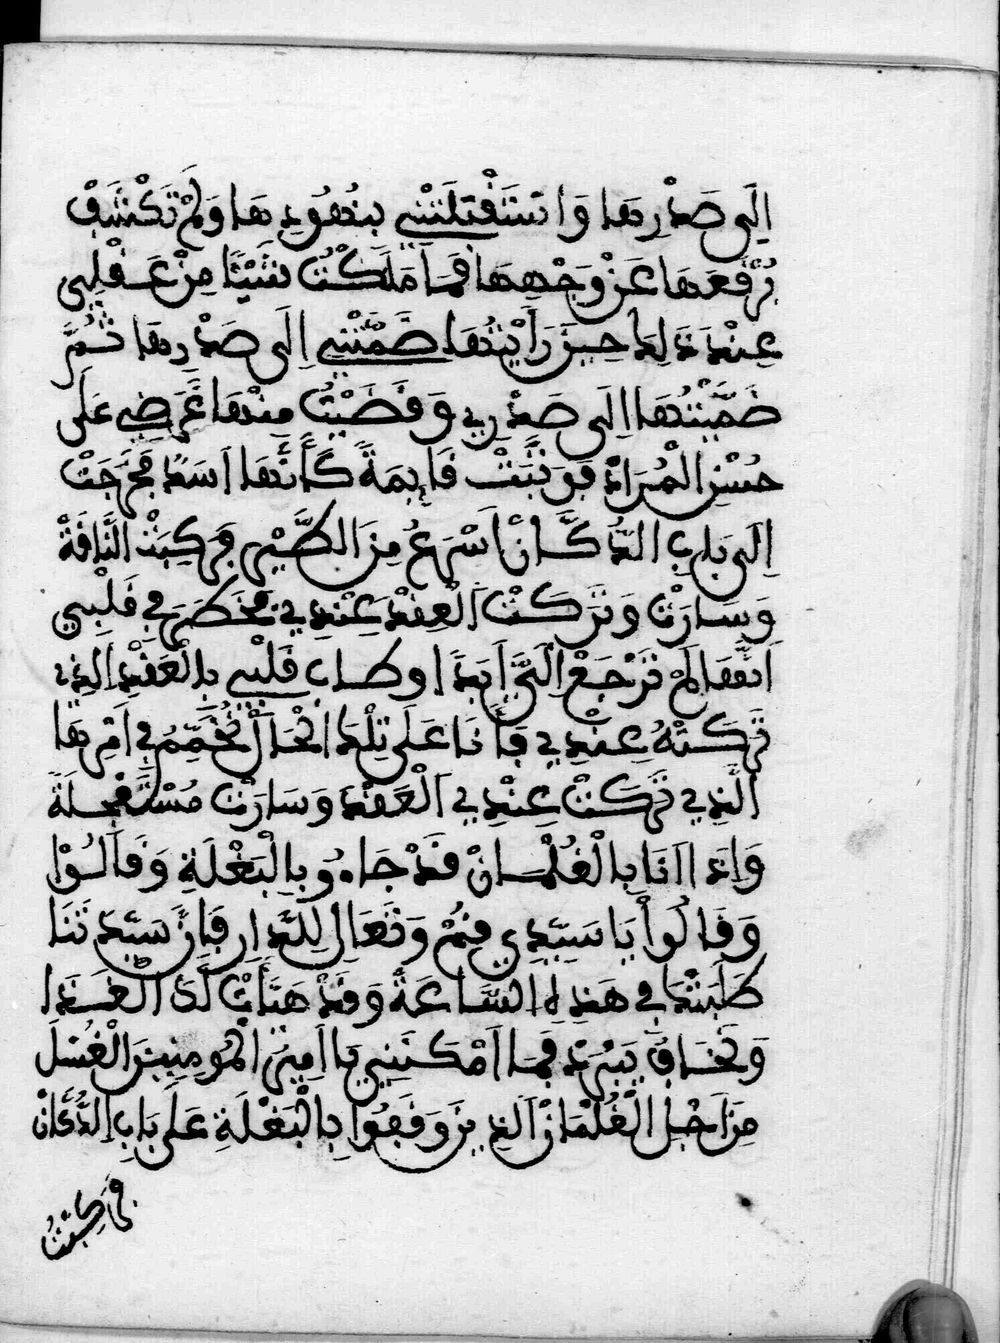 إِلَى صَدْرِهَا وَاسْتَقْبَلَتْنِي بِنُهُودِهَا وَلَمْ تَكْشِفْ
بُرْقُعَهَا عَنْ وَجْهِهَا فَمَا مَلَكْتُ شَيْئًا مِنْ عَقْلِي
عِنْدَ ذَلِكَ حِينَ رَأَيْتُهَا ضَمَّتْنِي إِلَى صَدْرِهَا ثُمَّ
ضَمَّيْتُهَا إِلَى صَدْرِي وَقَضَيْتُ مِنْهَا غَرَضِي عَلَى
حُسْنِ الْمُرَادْ فَوَثَبَتْ قَايِمَةً كَأَنَّهَا اَسَدٌ فَخَرَجَتْ
إِلَى بَابِ الدُّكَّانْ اَسْرَعُ مِنَ الطَّيْرِ فَرَكِبَتْ النَّاقَةْ
وَسَارَتْ وَتَرَكَتْ اَلْعِقْدْ عِنْدِي فَخَطَرَ فِي قَلْبِي
اَنَّهَا لَمْ تَرْجَعْ اِلَيَّ اَبَدًا وَطَابَ قَلْبِي بِالْعَقْدِ الذِي
تَرَكَتْهُ عِنْدِي فَأَنَا عَلَى تِلْكَ الْحَالْ نُخَمِّمُ فِي اَمْرِهَا
اَلَّذِي تَرَكَتْ عِنْدِي اَلْعَقْدْ وَسَارَتْ مُسْتَعْجِلَةً
وَاِذَا اَنَا بِالْغُلْمَانْ قَدْ جَاءُو بِالْبَغْلَةِ وَقَالُوْا
وَقَالُوْا يَا سَيِّدِي قُمْ وَتَعَالَ لِلدَّارِ فَإِنَّ سَيِّدَتَنَا
طَلَبَتْكَ فِي هَذِهِ السَّاعَةْ وَقَدْ هَيَّأَتْ لَكَ الْغَدَا
وَنْخَافُ يَبْرَدْ فَمَا اَمْكَنَنِي يَا اَمِيرَ الْمُومِنِينَ الْغُسْلَ
مِنْ اَجْلِ الْغُلْمَانْ اَلذِينَ وَقَفُوا بِالْبَغْلَةِ عَلَى بَابِ الدُّكَّانْ
فَرَكِبْتُ